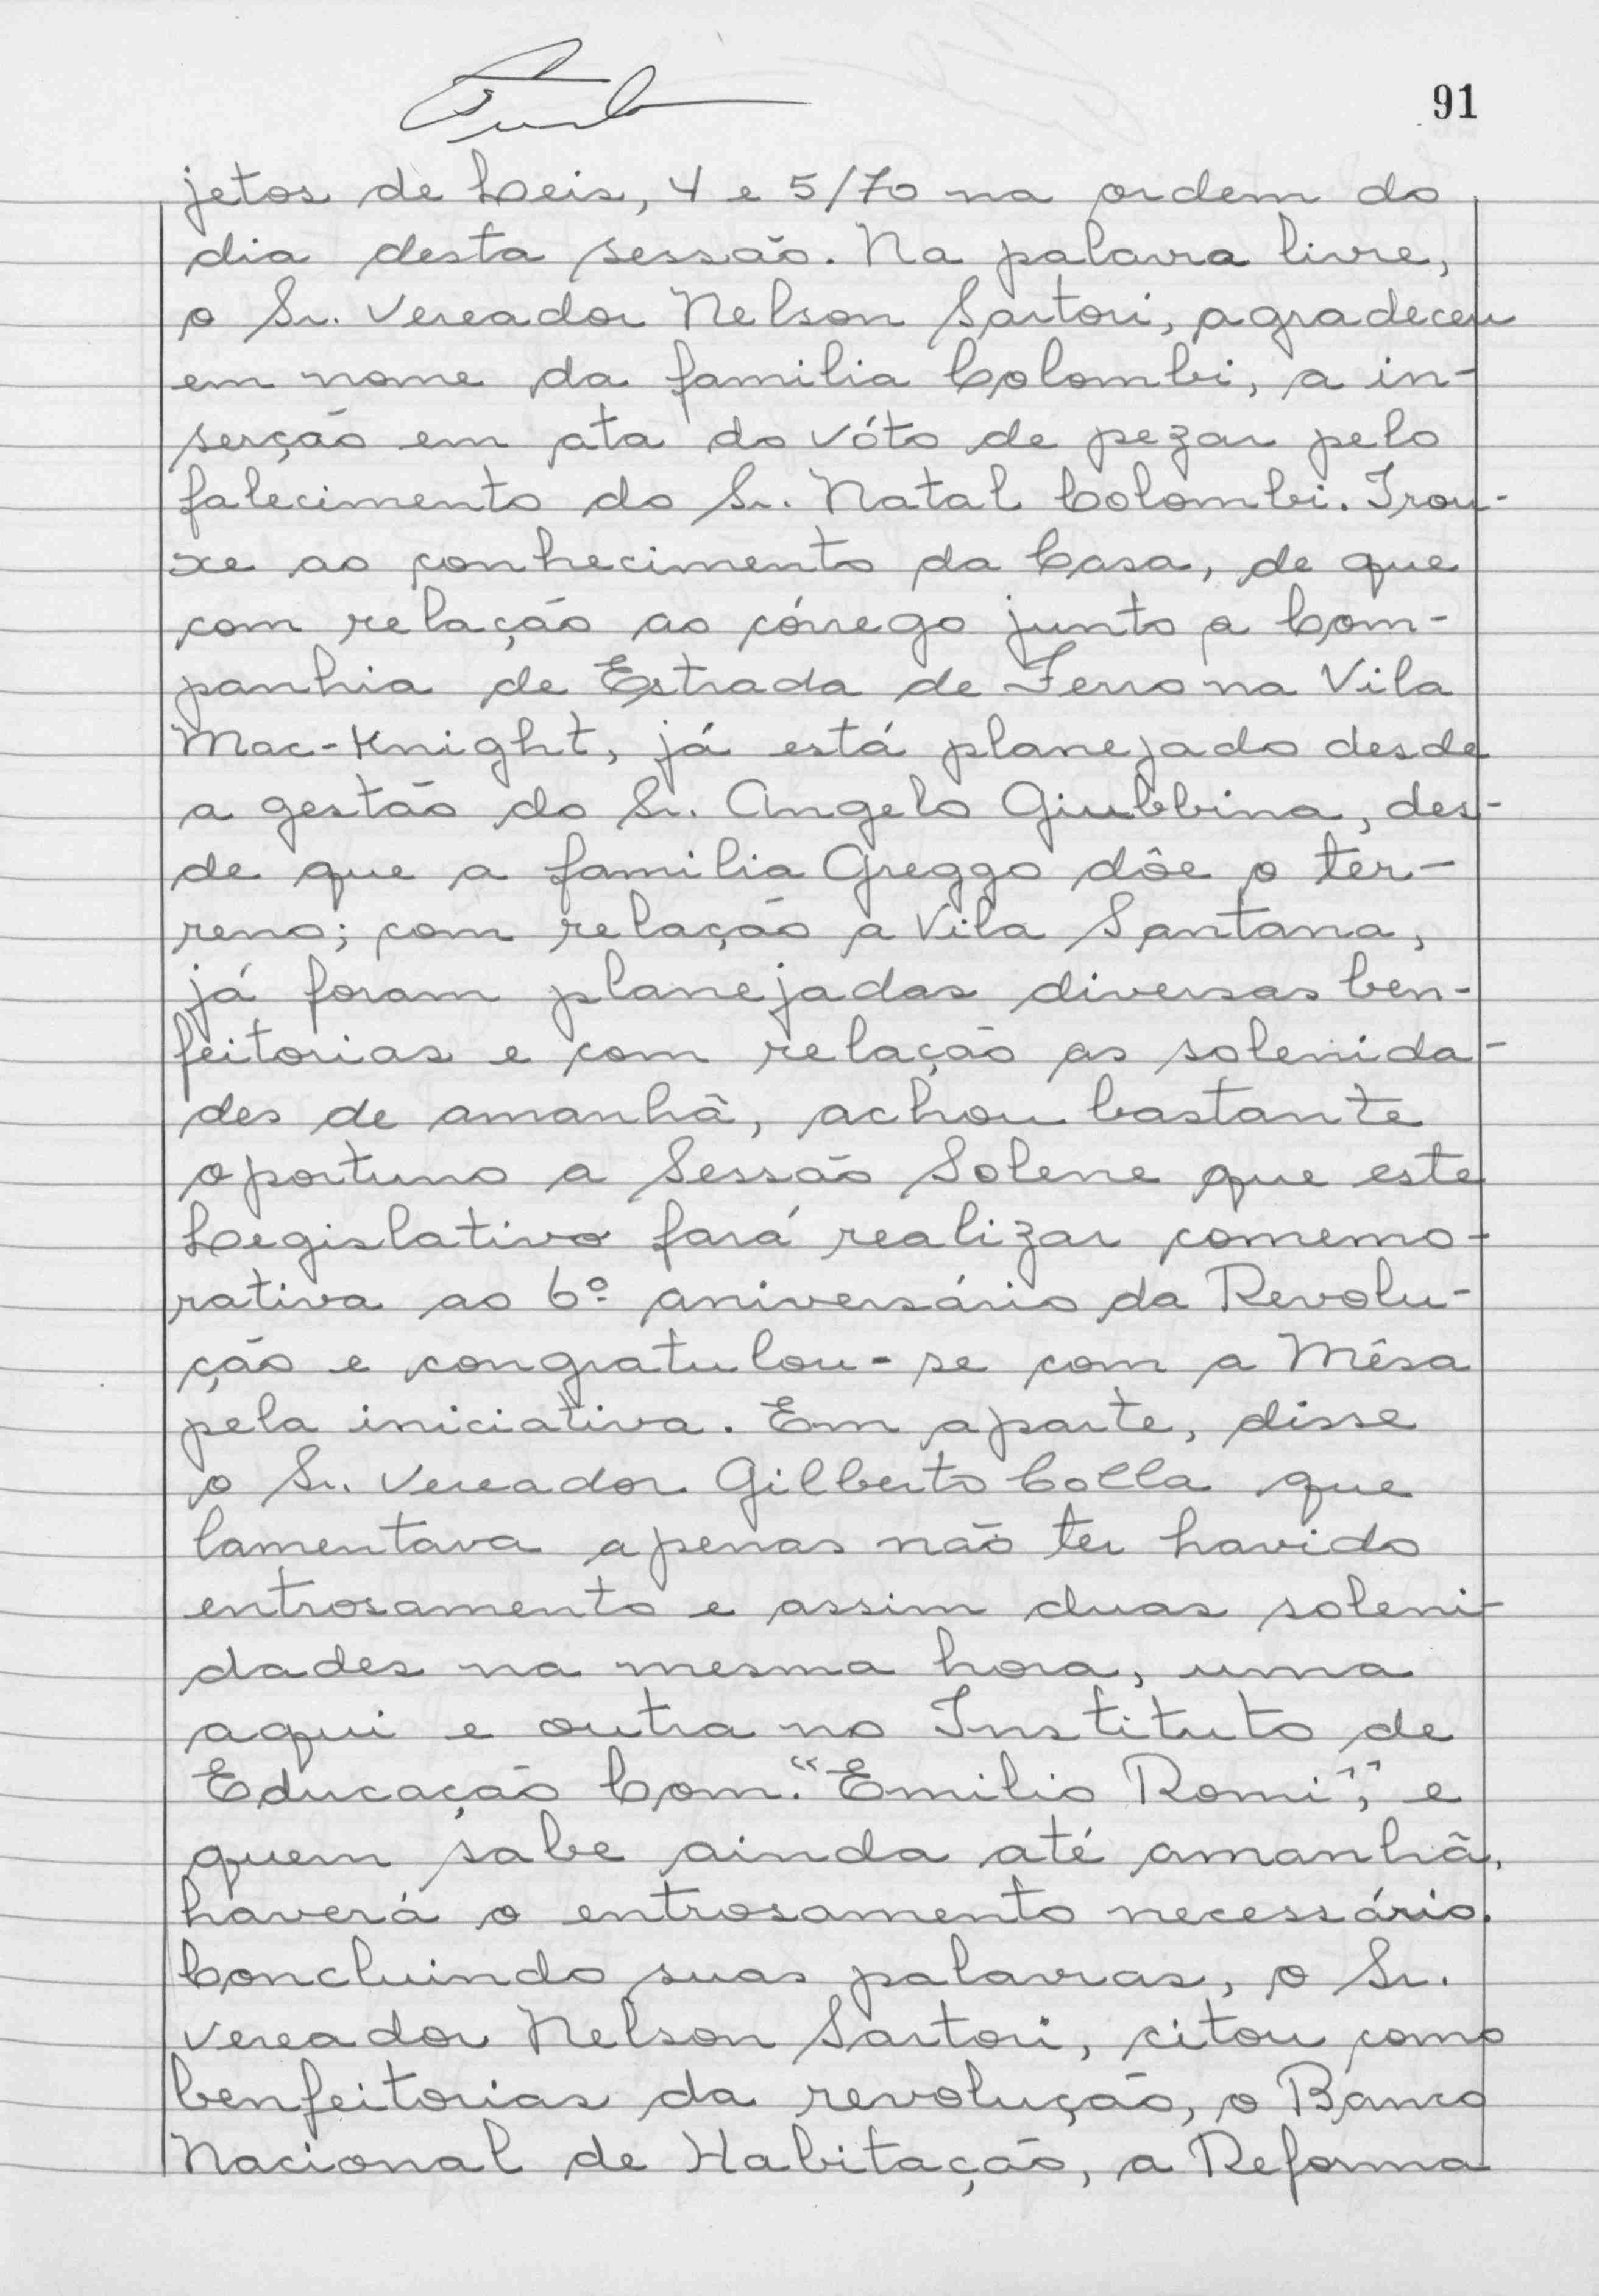 91
jetos de Leis, 4 e 5/70 na ordem do
dia desta sessão. Na palavra livre,
o Sr. Vereador Nelson Sartori, agradeceu
em nome da familia Colombi, a in-
serção em ata do vóto de pezar pelo
falecimento do Sr. Natal Colombi. Trou-
xe ao conhecimento da Casa, de que
com relação ao córrego junto a Com-
panhia de Estrada de Ferro na Vila
Mac-Knight, já está planejado desde
a gestão do Sr. Angelo Giubbina, des-
de que a familia Greggo dôe o ter-
reno; com relação a Vila Santana,
já foram planejadas diversas ben-
feitorias e com relação as solenida-
des de amanhã, achou bastante
oportuno a Sessão Solene que este
Legislativo fará realizar comemo-
rativa ao 6º aniversário da Revolu-
ção e congratulou-se com a Mêsa
pela iniciativa. Em aparte, disse
o Sr. Vereador Gilberto Colla que
lamentava apenas não ter havido
entrosamento e assim duas soleni-
dades na mesma hora, uma
aqui e outra no Instituto de
Educação Com. "Emilio Romi", e
quem sabe ainda até amanhã,
haverá o entrosamento necessário.
Concluindo suas palavras, o Sr.
Vereador Nelson Sartori, citou como
benfeitorias da revolução, o Banco
Nacional de Habitação, a Reforma